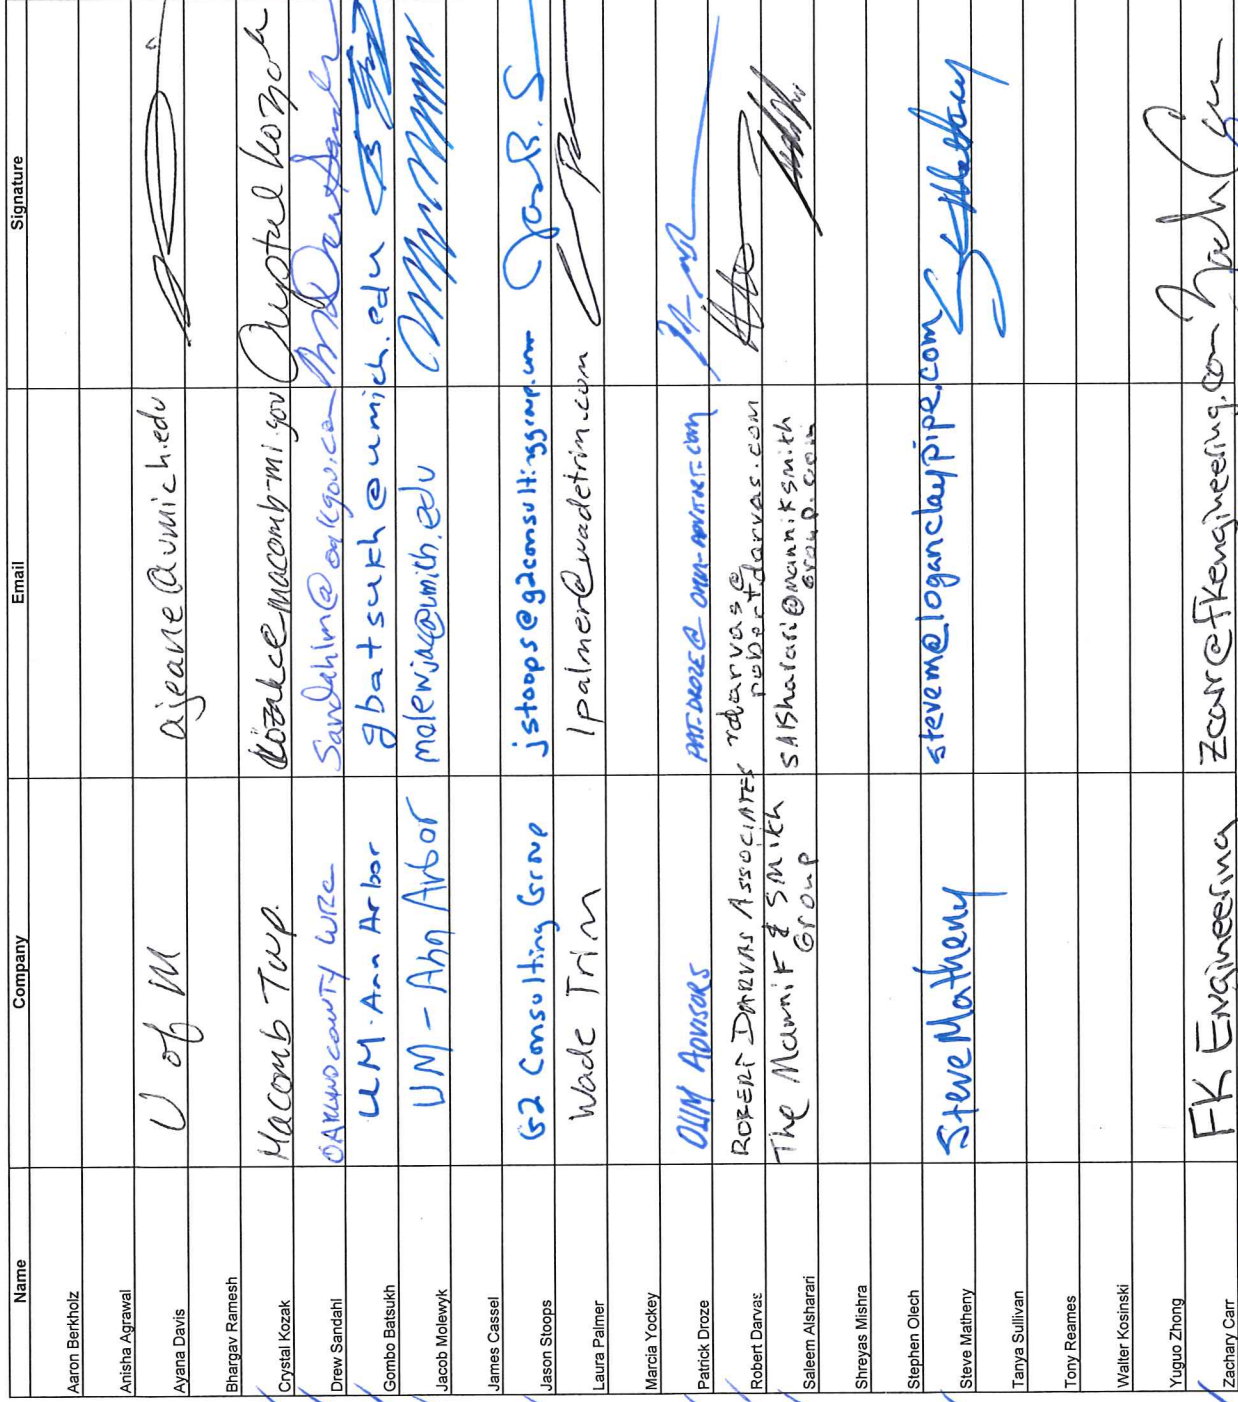 Name Company Email Signature
Aaron Berkholz
Anisha Agrawal
Ayana Davis U of M ajeane@umich.edu
Bhargav Ramesh
Crystal Kozak Macomb Twp. kozakc@macomb-mi.gov Crystal Kozak
Drew Sandahl OAKLAND COUNTY WRC Sandahlm@oakgov.com
Gombo Batsukh UM-Ann Arbor gbatsukh@umich.edu
Jacob Molewyk UM - Ann Arbor molewjac@umich.edu
James Cassel
Jason Stoops G2 Consulting Group jstoops@g2consultinggroup.com
Laura Palmer Wade Trim lpalmer@wadetrim.com
Marcia Yockey
Patrick Droze OHM ADVISORS PAT.DROZE@OHM-ADVISORS.COM
Robert Darvas ROBERT DARVAS ASSOCIATES rdarvas@
robertdarvas.com
Saleem Alsharari The Mannik & Smith
Group
SAlsharari@manniksmith
group.com
Shreyas Mishra
Stephen Olech
Steve Matheny Steve Matheny stevem@loganclaypipe.com
Tanya Sullivan
Tony Reames
Walter Kosinski
Yuguo Zhong
Zachary Carr FK Engineering zcarr@fkengineering.com